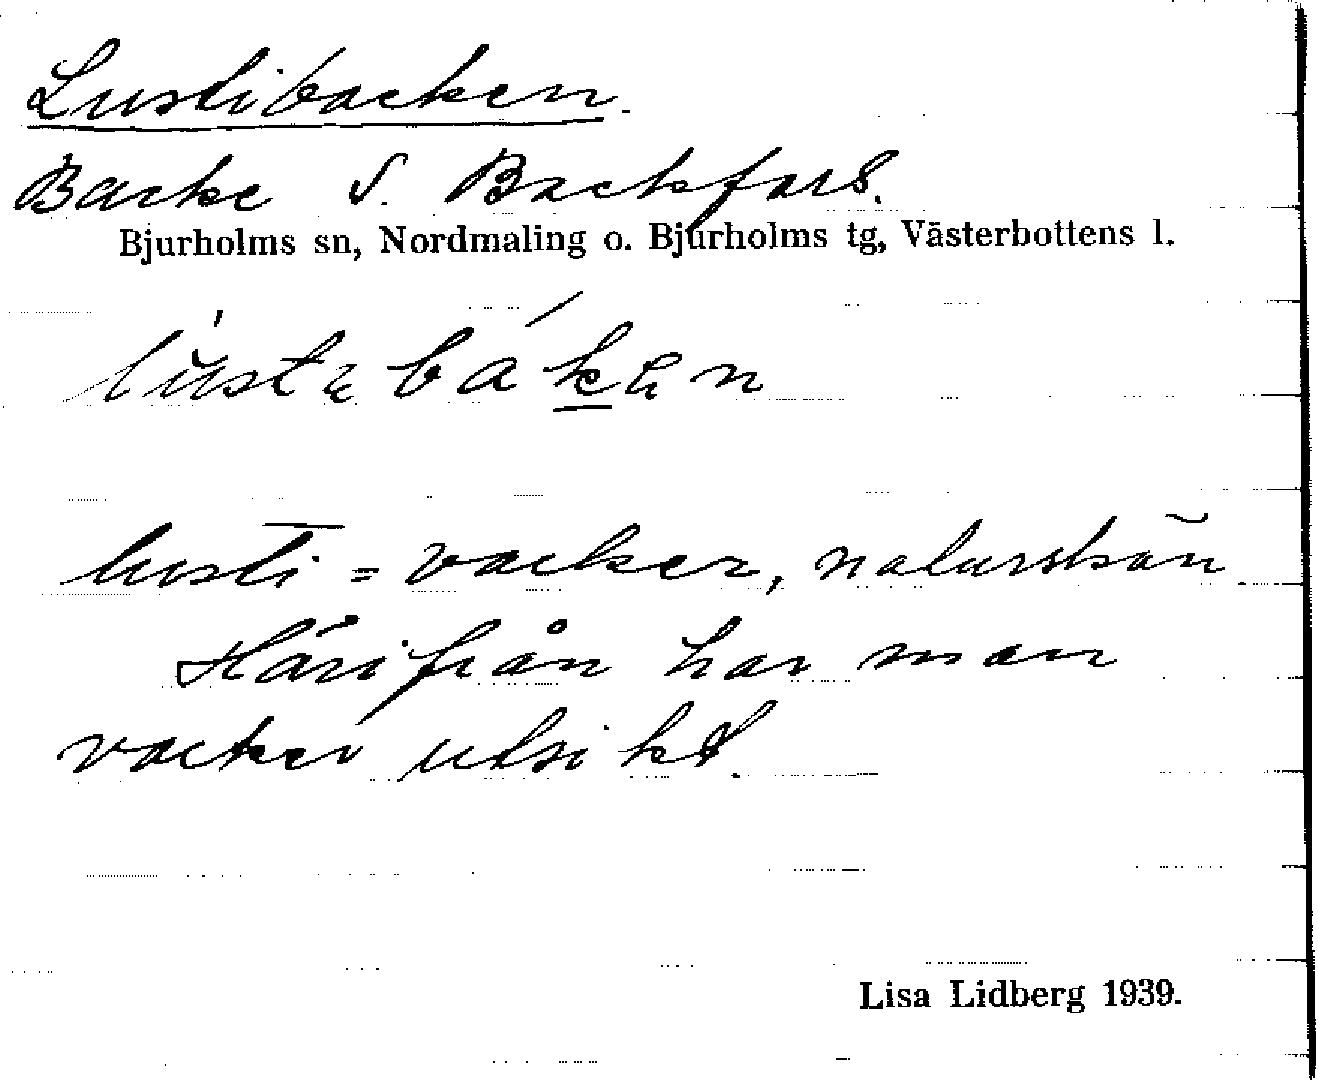 Lustibacken.
Backe S. Backfors.
Bjurholms sn, Nordmaling o. Bjurholms tg, Västerbottens l.
lustebaken
lusti = vacker, naturskön
Härifrån har man
vacker utsikt.
Lisa Lidberg 1939.